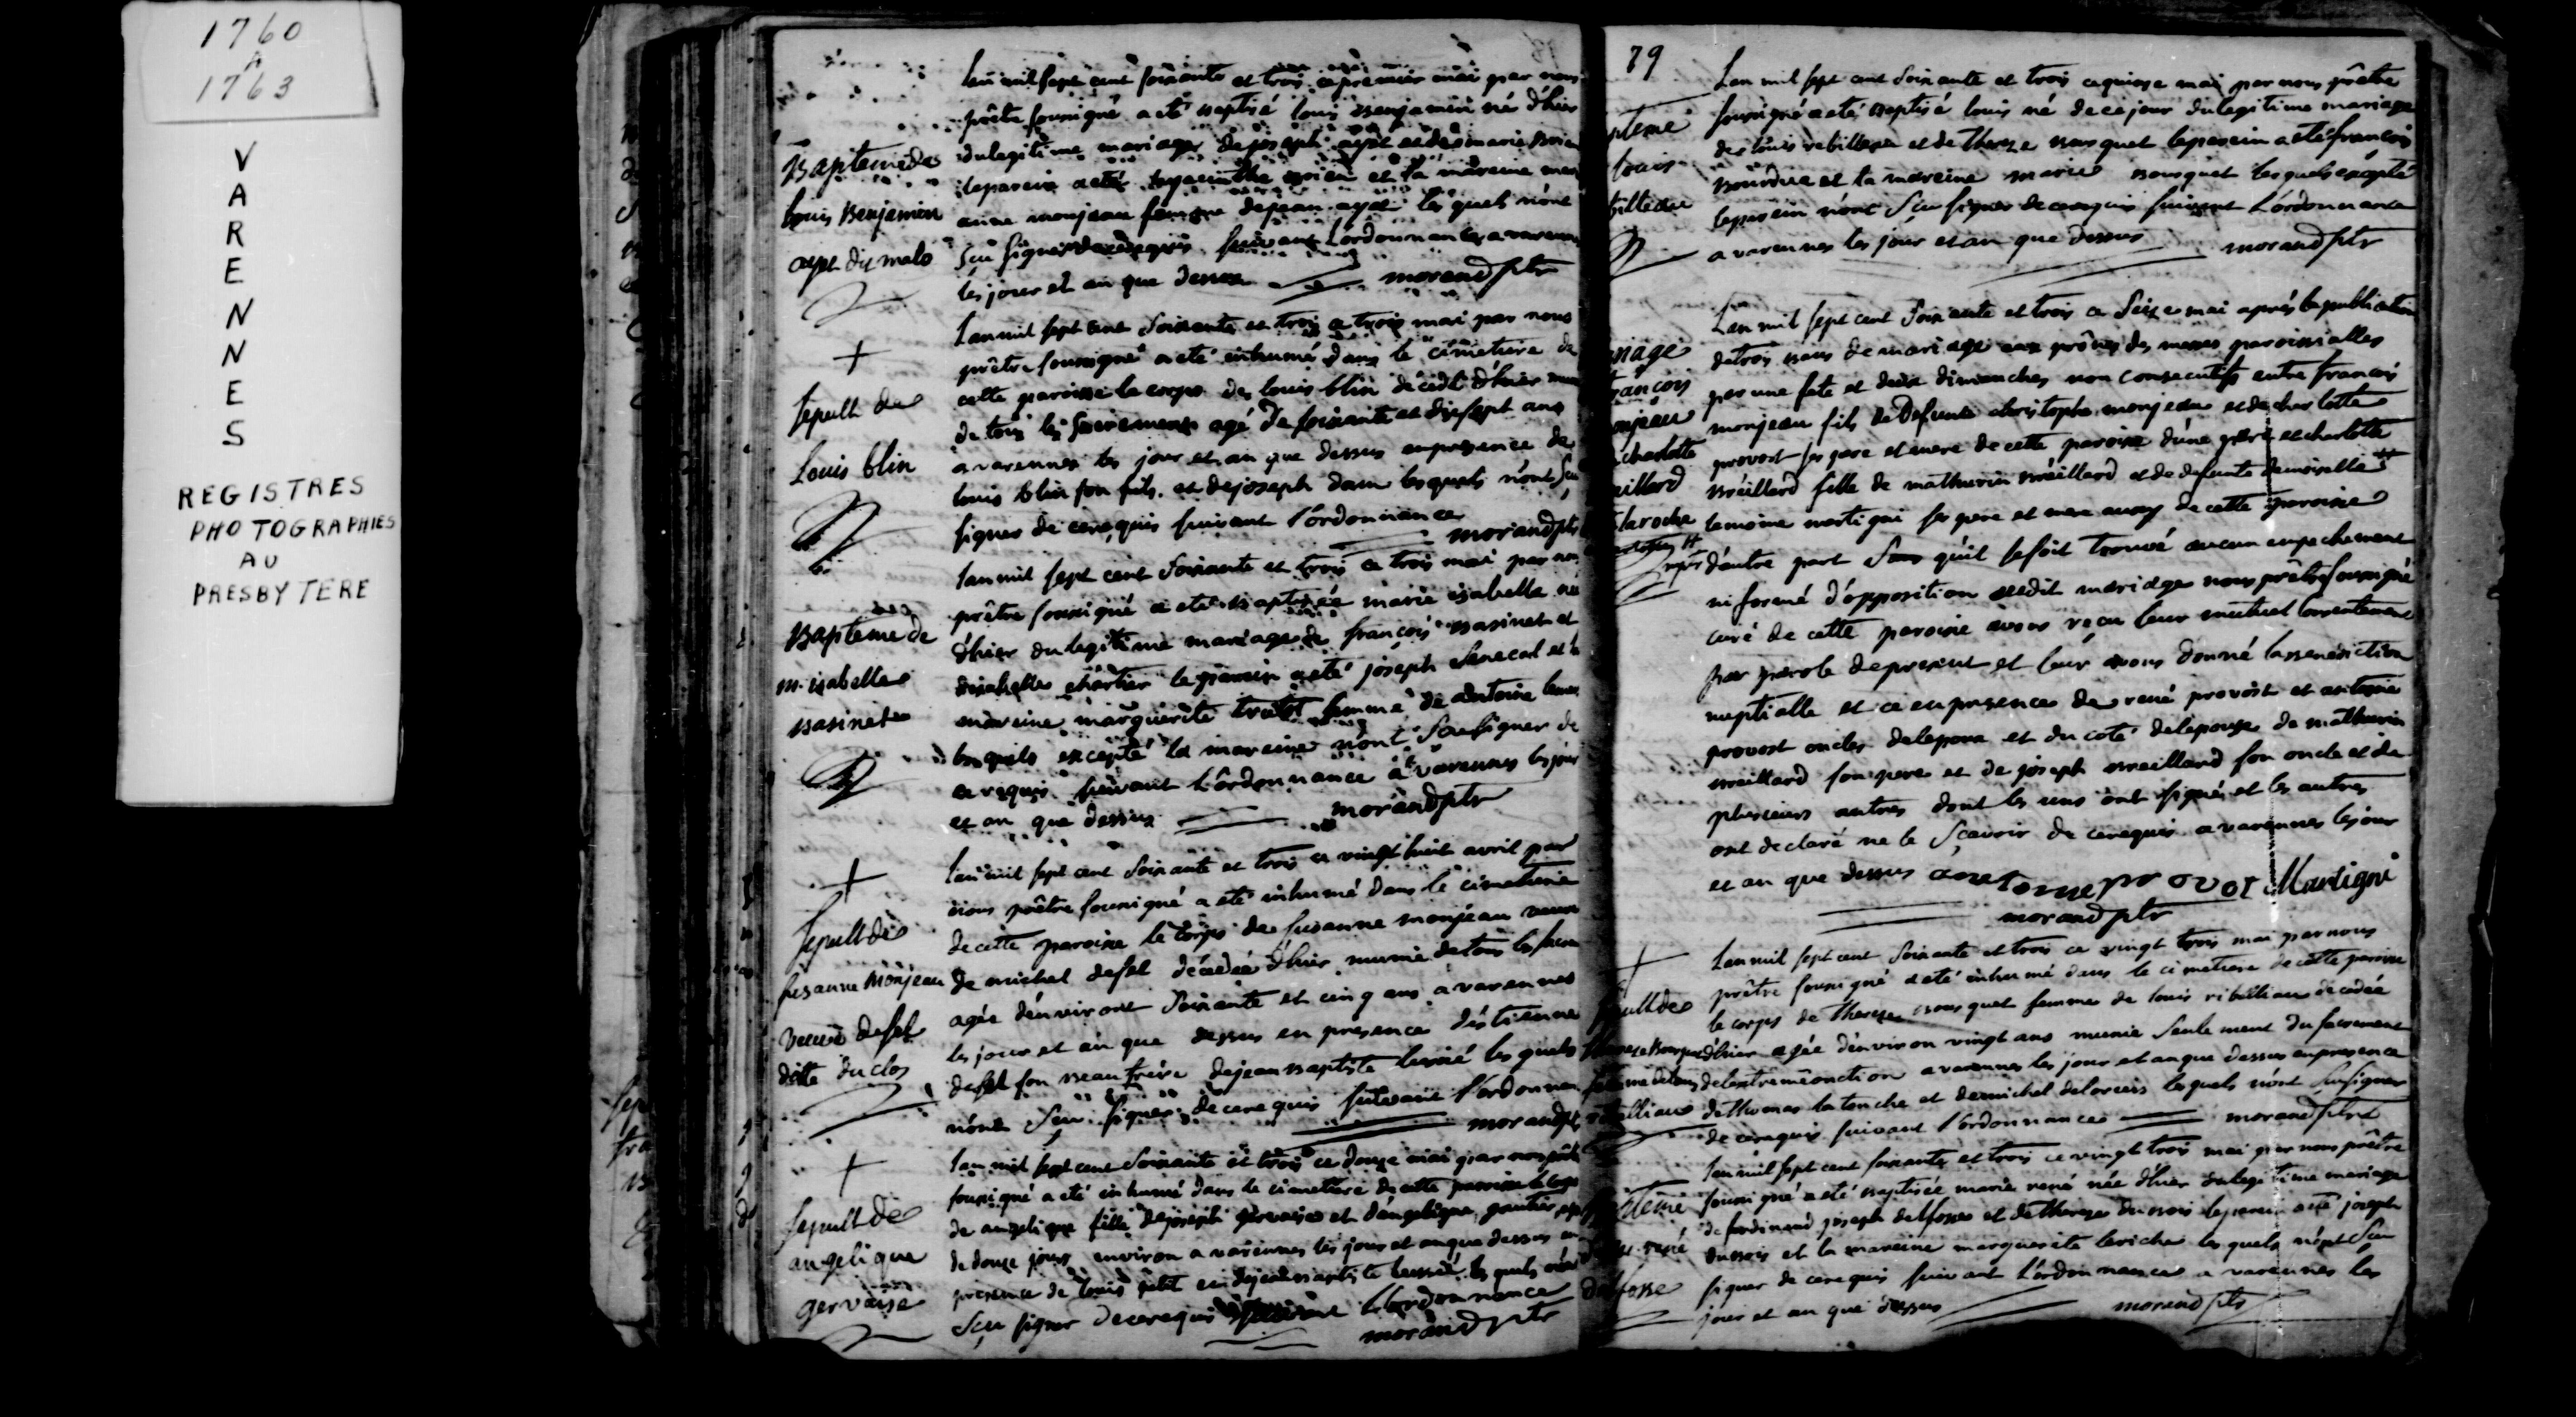 1760
A
1763
V
A
R
E
N
N
E
S
REGISTRES
PHOTOGRAPHIES
AU
PRESBYTERE
Baptême de
Louis Benjamin
ayet dit malo
Lan mil sept cent soixante et trois ce premier mai par nous
prêtre sousigné a eté baptisé louis benjamin né d'hier
du legitime mariage de joseph ayet et de marie
le parein a eté hyacinthe et la mareine
anne monjeau femme de jean ayet les quels n'ont
sçu signer de ce requis suivant l'ordonnance a varennes
les jour et an que dessus morand ptr
+
sepult de
Louis blin
Lan mil sept cent soixante et trois ce trois mai par nous
prêtre sousigné a eté inhumé dans le cimetiere de
cette paroisse le corps de louis blin décédé d'hier muni
de tous les sacremens agé de soixante et dix sept ans
a varennes les jour et an que dessus en presence de
louis blin son fils et de joseph dans les quels n'ont sçu
signer de ce requis suivant l'ordonnance
morand ptr
Baptême de
m. isabelle
basinet
Lan mil sept cent soixante et trois ce trois mai par nous
prêtre sousigné a eté baptisée marie isabelle née
d'hier du legitime mariage de françois basinet et
d'isabelle chartier le parein a eté joseph senecal et la
mareine marguerite trutot femme de antoine
les quels excepté la mareine n'ont sçu signer de
ce requis suivant l'ordonnance a varennes les jour
et an que dessus morand ptr
+
sepult de
susanne Monjeau
veuve defel
ditte duclos
Lan mil sept cent soixante et trois ce vingt huit avril par
nous prêtre sousigné a eté inhumé dans le cimetiere
de cette paroisse le corps de susanne monjeau veuve
de michel defel décédée d'hier munie de tous les sacre
agée d'environt soixante et cinq ans a varennes
les jour et an que dessus en presence d'estienne
defel son beau frère de jean baptiste les quels
n'ont sçu signer de ce requis suivant l'ordonnan
morand ptr
+
sepult de
angelique
gervaise
Lan mil sept cent soixante et trois ce douze mai par nous prêtre
sousigné a eté inhumé dans le cimetiere de cette paroisse le corps
de angelique fille de joseph gervaise et d'angelique gautier agée
de douze jours environ a varennes les jour et an que dessus en
presence de louis petit et de jean baptiste les quels n'ont
sçu signer de ce requis suivant l'ordonnance
morand ptr
79
ptême
louis
Lan mil sept cent soixante et trois ce quinze mai par nous prêtre
sousigné a eté baptisé louis né de ce jour du legitime mariage
de louis et de therese bousquet le parein a eté françois
et la mareine marie bousquet les quels excepté
le parein n'ont sçu signer de ce requis suivant l'ordonnance
a varennes les jour et an que dessus morand ptr
riage
rançois
onjeau
charlotte
eillard
laroche
Lan mil sept cent soixante et trois ce seize mai après la publication
de trois bans de mariage aux prônes des messes paroissialles
par une fete et deux dimanches non consecutifs entre françois
monjeau fils de defunt christophe monjeau et de charlotte
provost ses pere et mere de cette paroisse d'une part et charlotte
breillard fille de mathurin breillard et de defunte demoiselle
lemoine martigni ses pere et mere aussy de cette paroisse
d'autre part sans qu'il se soit trouvé aucun empechement
ni formé d'opposition audit mariage nous prêtre sousigné
curé de cette paroisse avons reçu leur mutuel consentement
par parole de present et leur avons donné la benediction
nuptialle et ce en presence de rené provost et antoine
provost oncles de lepoux et du coté de lepouse de mathurin
breillard son pere et de joseph breillard son oncle et de
plusieurs autres dont les uns ont signés et les autres
ont declaré ne le sçavoir de ce requis a varennes les jour
et an que dessus anetonne provot Martigni
morand ptr
+
sepult de
therese bousquet
femme de louis
Lan mil sept cent soixante et trois ce vingt trois mai par nous
prêtre sousigné a eté inhumé dans le cimetiere de cette paroisse
le corps de therese bousquet femme de louis décédée
d'hier agée d'environ vingt ans munie seulement du sacrement
de lextremeonction a varennes les jour et an que dessus en presence
de thomas la touche et de michel les quels n'ont sçu signer
de ce requis suivant l'ordonnance morand ptr
ptême
rené
delfosse
Lan mil sept cent soixante et trois ce vingt trois mai par nous prêtre
sousigné a eté baptisée marie rené née d'hier du legitime mariage
de ferdinand joseph delfosse et de therese dubois le parein a eté joseph
dubois et la mareine marguerite leriche les quels n'ont sçu
signer de ce requis suivant l'ordonnance a varennes les
jour et an que dessus morand ptr